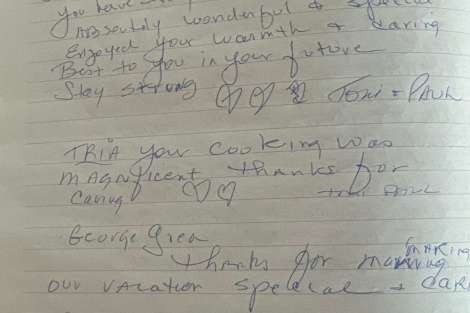 you have
Absoutly wonderful & special
Enjoyed your warmth & caring
Best to you in your future
Stay strong Toni + PAUL
TRIA you cooking was
magnificent thanks for
caring Toni PAUL
George
thanks for MAKING
our vacation special + CAR